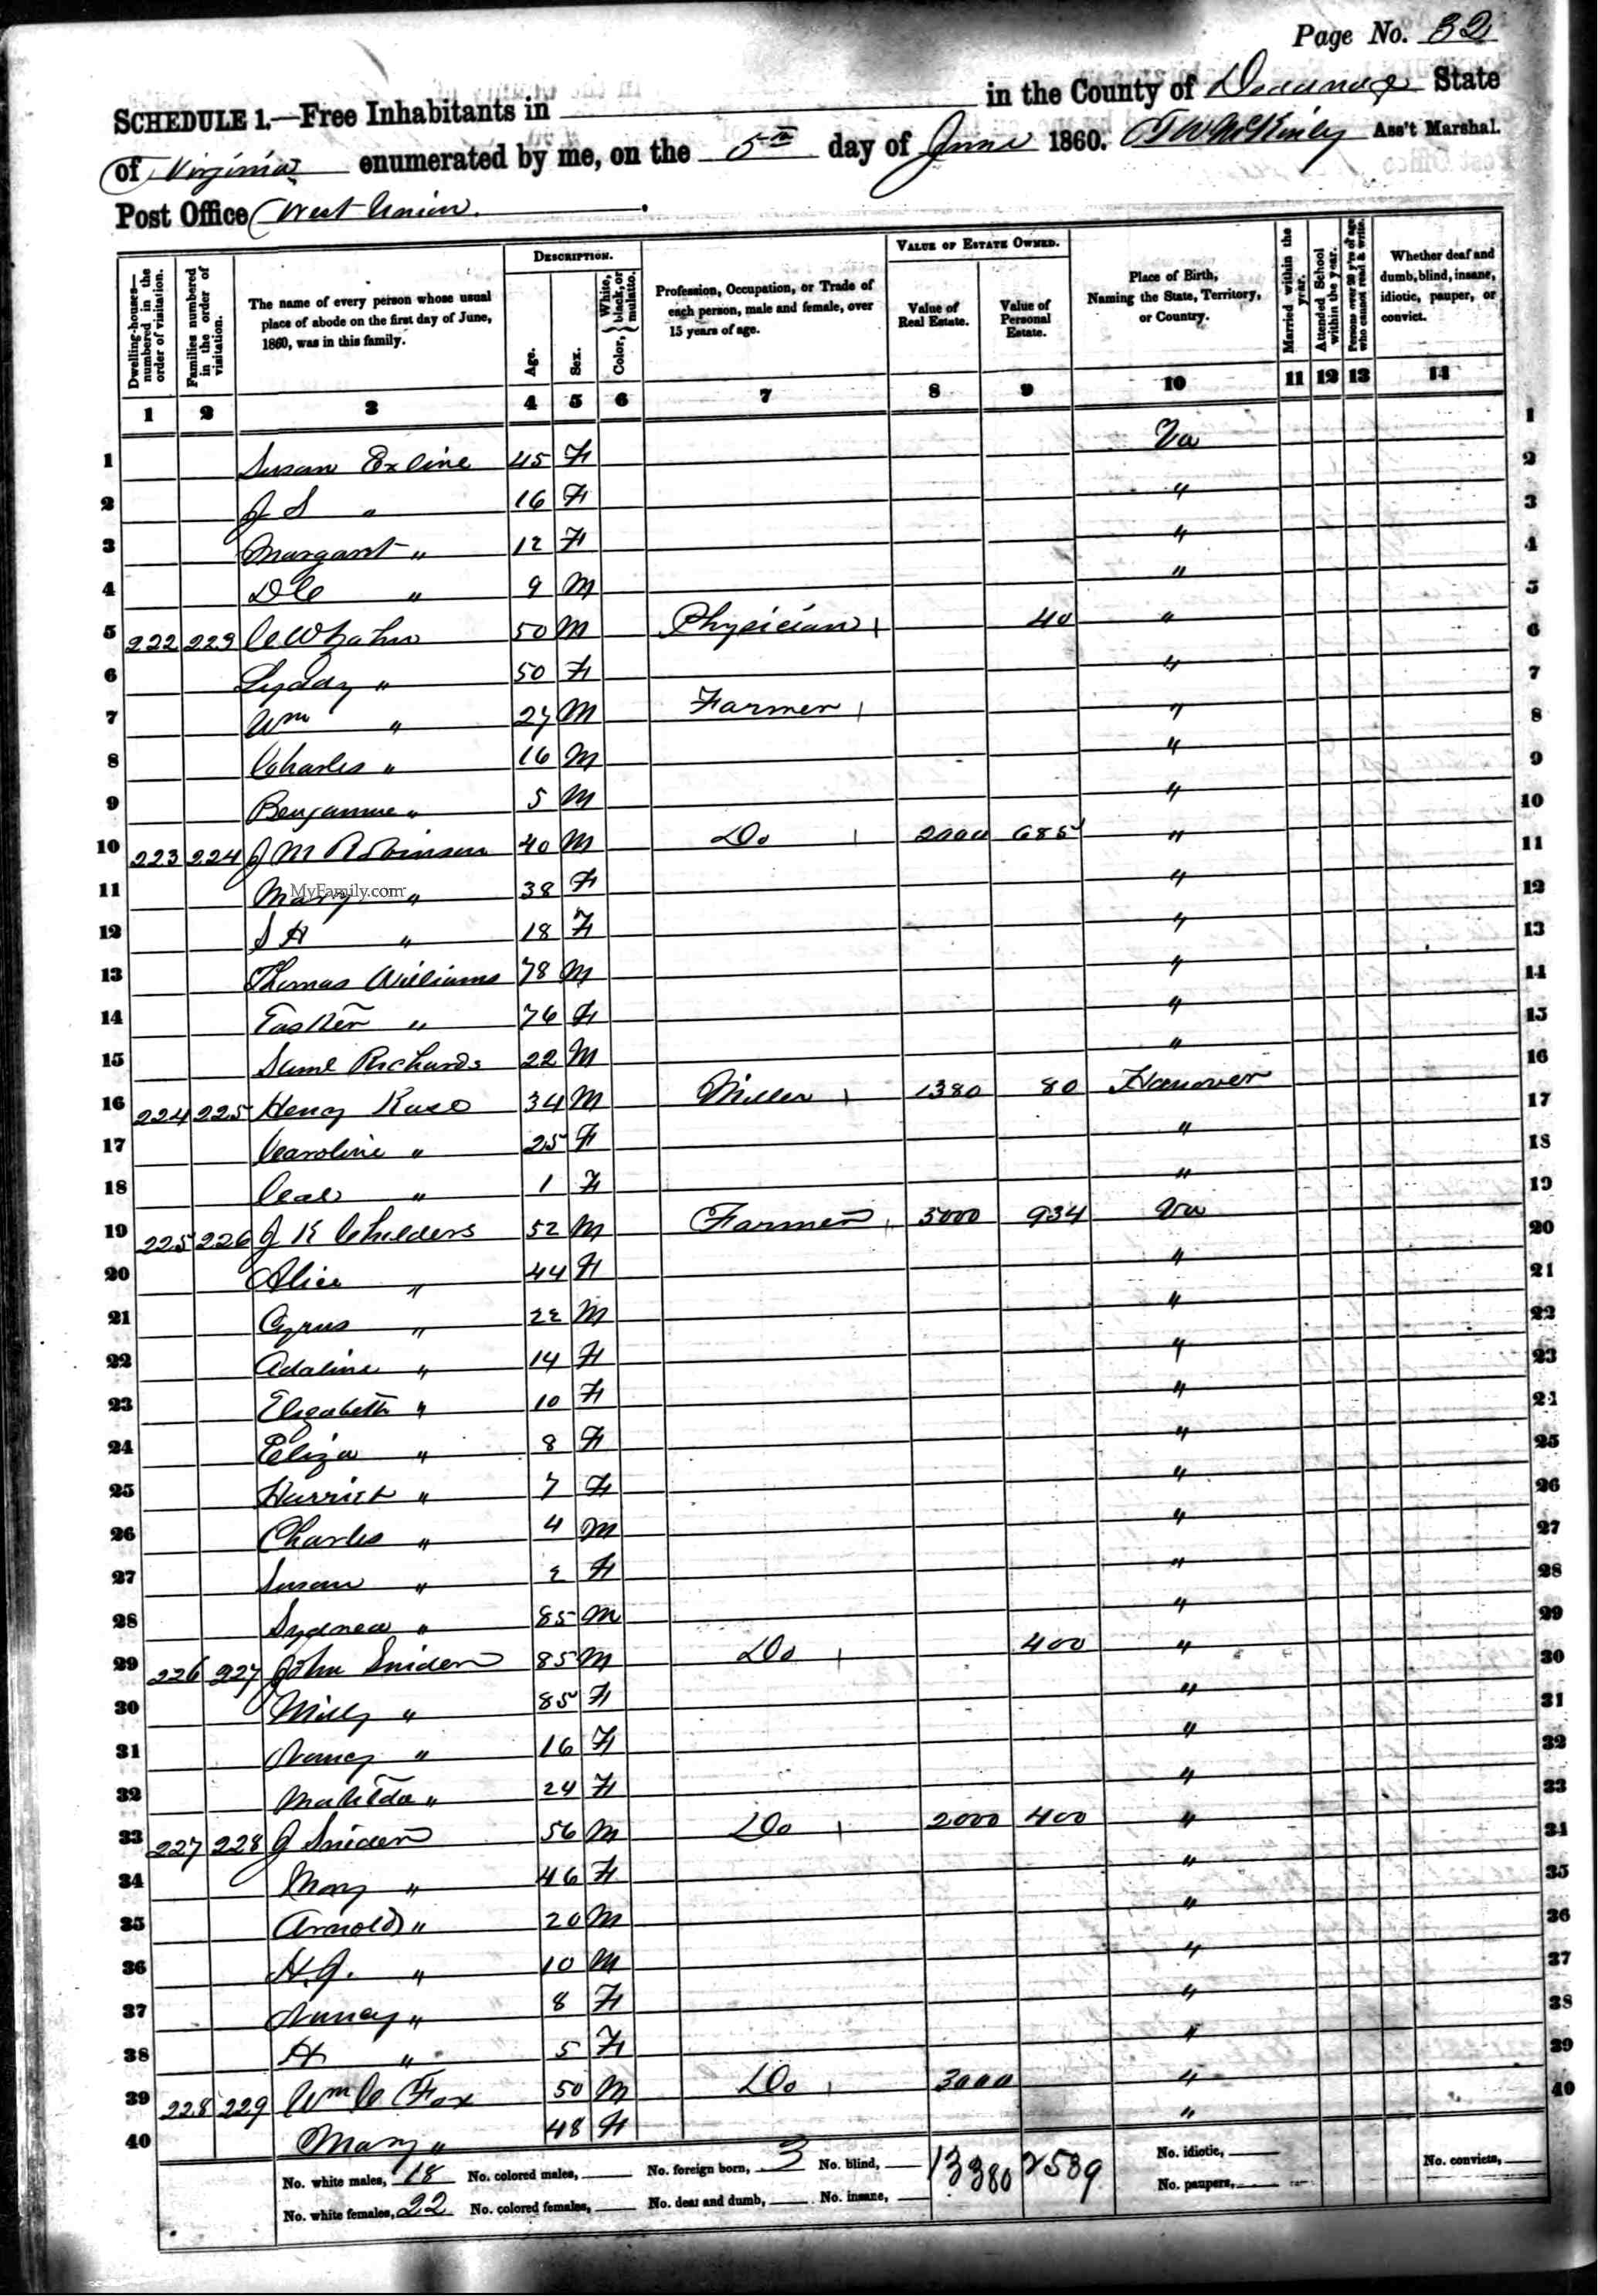 Page No. 32
SCHEDULE 1.—Free Inhabitants in in the County of State
of Virginia enumerated by me, on the 5th day of June 1860. T W McKinley Ass't Marshal.
Post Office West Union.
Dwelling-houses—numbered in the order of visitation.
Families numbered in the order of visitation.
The name of every person whose usual place of abode on the first day of June, 1860, was in this family.
DESCRIPTION.
Age.
Sex.
Color, White, black, or mulatto.
Profession, Occupation, or Trade of each person, male and female, over 15 years of age.
VALUE OF ESTATE OWNED.
Value of Real Estate.
Value of Personal Estate.
Place of Birth, Naming the State, Territory, or Country.
Married within the year.
Attended School within the year.
Persons over 20 y'rs of age who cannot read & write.
Whether deaf and dumb, blind, insane, idiotic, pauper, or convict.
1 2 3 4 5 6 7 8 9 10 11 12 13 14
1 Susan Exline 45 F Va 1
2 J S " 16 F " 2
3 Margaret " 12 F " 3
4 " 9 M " 4
5 222 223 C W 50 M Physician 40 " 5
6 Lydday " 50 F " 6
7 Wm " 27 M Farmer " 7
8 Charles " 16 M " 8
9 Benjamine " 5 M " 9
10 223 224 J M Robinson 40 M Do 2000 685 " 10
11 Mary " 38 F " 11
MyFamily.com
12 S H " 18 F " 12
13 Thomas Williams 78 M " 13
14 " 76 F " 14
15 Saml Richards 22 M " 15
16 224 225 Henry 34 M Miller 1380 80 Hanover 16
17 Caroline " 25 F " 17
18 " 1 F " 18
19 225 226 J K Childers 52 M Farmer 5000 934 Va 19
20 Alice " 44 F " 20
21 Cyrus " 22 M " 21
22 Adaline " 14 F " 22
23 Elizabeth " 10 F " 23
24 Eliza " 8 F " 24
25 Harriet " 7 F " 25
26 Charles " 4 M " 26
27 Susan " 2 F " 27
28 Sydnea " 85 M " 28
29 226 227 John Snider 85 M Do 400 " 29
30 Milly " 85 F " 30
31 Nancy " 16 F " 31
32 Matilda " 24 F " 32
33 227 228 J Snider 56 M Do 2000 400 " 33
34 Mary " 46 F " 34
35 Arnold " 20 M " 35
36 H.J. " 10 M " 36
37 Nancy " 8 F " 37
38 H " 5 F " 38
39 228 229 Wm C Fox 50 M Do 3000 " 39
40 Mary " 48 F " 40
No. white males, 18 No. colored males, No. foreign born, 3 No. blind, 13380 2539 No. idiotic, No. convicts,
No. white females, 22 No. colored females, No. deaf and dumb, No. insane, No. paupers,